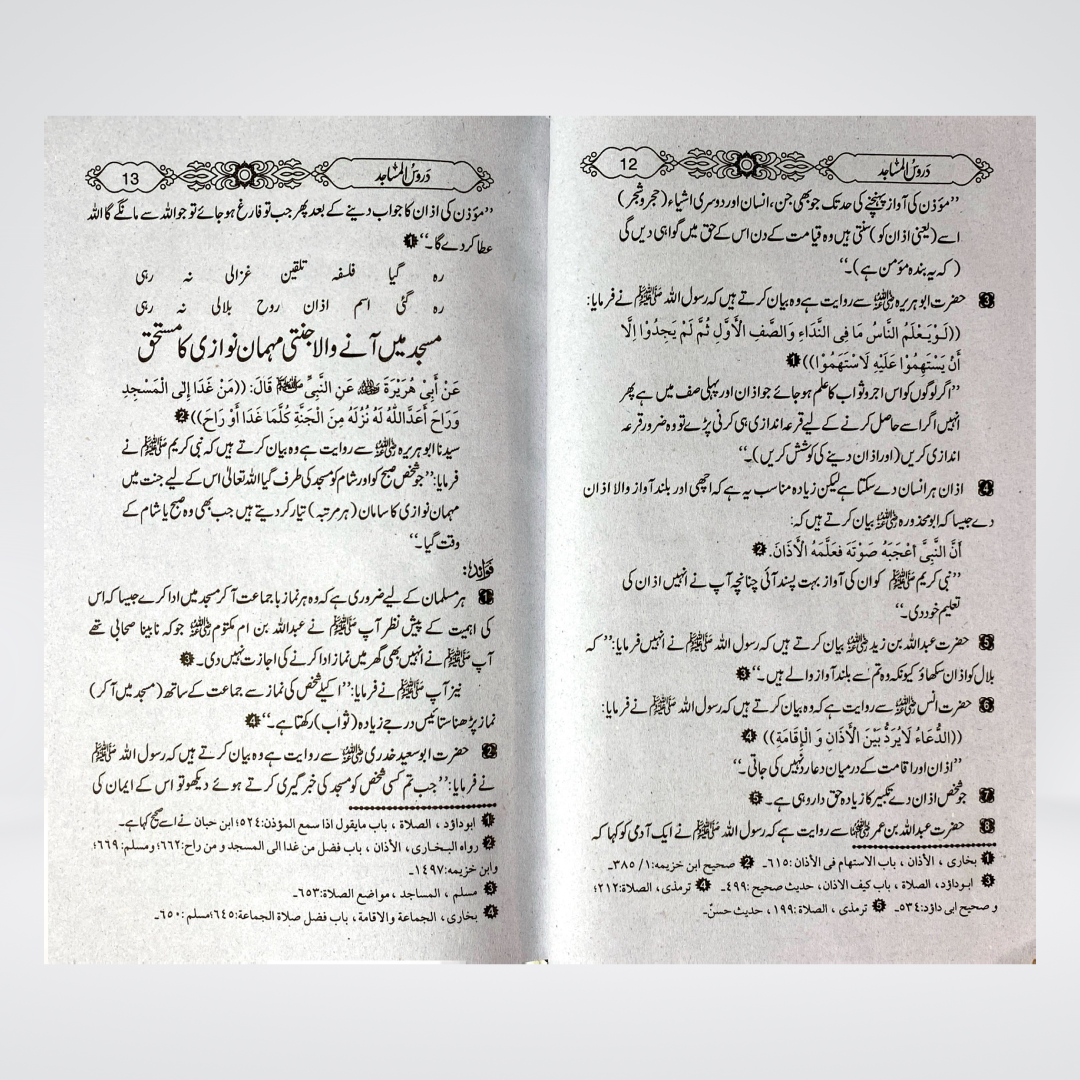 دروس المساجد 12
”مؤذن کی آواز پہنچنے کی حد تک جو بھی جن، انسان اور دوسری اشیاء (حجر و شجر)
اسے (یعنی اذان کو) سنتی ہیں وہ قیامت کے دن اس کے حق میں گواہی دیں گی
( کہ یہ بندہ مؤمن ہے )۔“
3 حضرت ابو ہریرہ رضی اللہ عنہ سے روایت ہے وہ بیان کرتے ہیں کہ رسول اللہ ﷺ نے فرمایا:
((لَوْ یَعْلَمُ النَّاسُ مَا فِی النِّدَاءِ وَالصَّفِ الْأَوَّلِ ثُمَّ لَمْ یَجِدُوْا إِلَّا
أَنْ یَسْتَهِمُوْا عَلَیْهِ لَاسْتَهَمُوْا)) 1
”اگر لوگوں کو اس اجر و ثواب کا علم ہو جائے جو اذان اور پہلی صف میں ہے پھر
انہیں اگر اسے حاصل کرنے کے لیے قرعہ اندازی ہی کرنی پڑے تو وہ ضرور قرعہ
اندازی کریں (اور اذان دینے کی کوشش کریں)۔“
4 اذان ہر انسان دے سکتا ہے لیکن زیادہ مناسب یہ ہے کہ اچھی اور بلند آواز والا اذان
دے جیسا کہ ابو محذورہ رضی اللہ عنہ بیان کرتے ہیں کہ:
أَنَّ النَّبِیَّ أَعْجَبَهُ صَوْتَهُ فَعَلَّمَهُ الْأَذَانَ. 2
”نبی کریم ﷺ کو ان کی آواز بہت پسند آئی چنانچہ آپ نے انہیں اذان کی
تعلیم خود دی۔“
5 حضرت عبداللہ بن زید رضی اللہ عنہ بیان کرتے ہیں کہ رسول اللہ ﷺ نے انہیں فرمایا: ”کہ
بلال کو اذان سکھاؤ کیونکہ وہ تم سے بلند آواز والے ہیں۔“ 3
6 حضرت انس رضی اللہ عنہ سے روایت ہے کہ وہ بیان کرتے ہیں کہ رسول اللہ ﷺ نے فرمایا:
((الدُّعَاءُ لَا یُرَدُّ بَیْنَ الْأَذَانِ وَ الْإِقَامَةِ)) 4
”اذان اور اقامت کے درمیان دعا رد نہیں کی جاتی۔“
7 جو شخص اذان دے تکبیر کا زیادہ حق دار وہی ہے۔ 5
8 حضرت عبداللہ بن عمر رضی اللہ عنہما سے روایت ہے کہ رسول اللہ ﷺ نے ایک آدمی کو کہا کہ
1 بخاری ، الأذان ، باب الاستهام فی الأذان :٦١٥۔ 2 صحیح ابن خزیمه:١/ ٣٨٥۔
3 ابوداؤد، الصلاة ، باب کیف الاذان، حدیث صحیح :٤٩٩۔ 4 ترمذی ، الصلاة:٢١٢؛
و صحیح ابی داؤد:٥٣٤۔ 5 ترمذی ، الصلاة:١٩٩ ، حدیث حسنٌ۔
دروس المساجد 13
”مؤذن کی اذان کا جواب دینے کے بعد پھر جب تو فارغ ہو جائے تو جو اللہ سے مانگے گا اللہ
عطا کر دے گا۔“ 1
رہ گیا فلسفہ تلقین غزالی نہ رہی
رہ گئی اسم اذان روح بلالی نہ رہی
مسجد میں آنے والا جنتی مہمان نوازی کا مستحق
عَنْ أَبِیْ هُرَیْرَةَ رضی اللہ عنہ عَنِ النَّبِیِّ ﷺ قَالَ: ((مَنْ غَدَا إِلَی الْمَسْجِدِ
وَرَاحَ أَعَدَّاللَّهُ لَهُ نُزُلَهُ مِنَ الْجَنَّةِ کُلَّمَا غَدَا أَوْ رَاحَ)) 2
سیدنا ابو ہریرہ رضی اللہ عنہ سے روایت ہے وہ بیان کرتے ہیں کہ نبی کریم ﷺ نے
فرمایا: ”جو شخص صبح کو اور شام کو مسجد کی طرف گیا اللہ تعالیٰ اس کے لیے جنت میں
مہمان نوازی کا سامان (ہر مرتبہ) تیار کر دیتے ہیں جب بھی وہ صبح یا شام کے
وقت گیا۔“
فوائد:
1 ہر مسلمان کے لیے ضروری ہے کہ وہ ہر نماز با جماعت آ کر مسجد میں ادا کرے جیسا کہ اس
کی اہمیت کے پیش نظر آپ ﷺ نے عبداللہ بن ام مکتوم رضی اللہ عنہ جو کہ نابینا صحابی تھے
آپ ﷺ نے انہیں بھی گھر میں نماز ادا کرنے کی اجازت نہیں دی۔ 3
نیز آپ ﷺ نے فرمایا: ”اکیلے شخص کی نماز سے جماعت کے ساتھ (مسجد میں آ کر)
نماز پڑھنا ستائیس درجے زیادہ (ثواب) رکھتا ہے۔“ 4
2 حضرت ابو سعید خدری رضی اللہ عنہ سے روایت ہے وہ بیان کرتے ہیں کہ رسول اللہ ﷺ
نے فرمایا: ”جب تم کسی شخص کو مسجد کی خبر گیری کرتے ہوئے دیکھو تو اس کے ایمان کی
1 ابوداؤد ، الصلاة ، باب مایقول اذا سمع المؤذن:٥٢٤؛ ابن حبان نے اسے صحیح کہا ہے۔
2 رواه البخاری ، الأذان ، باب فضل من غدا الی المسجد و من راح:٦٦٢؛ ومسلم :٦٦٩؛
وابن خزیمه:١٤٩٧۔
3 مسلم ، المساجد ، مواضع الصلاة:٦٥٣۔
4 بخاری ، الجماعة والاقامة ، باب فضل صلاة الجماعة:٦٤٥؛مسلم :٦٥٠۔